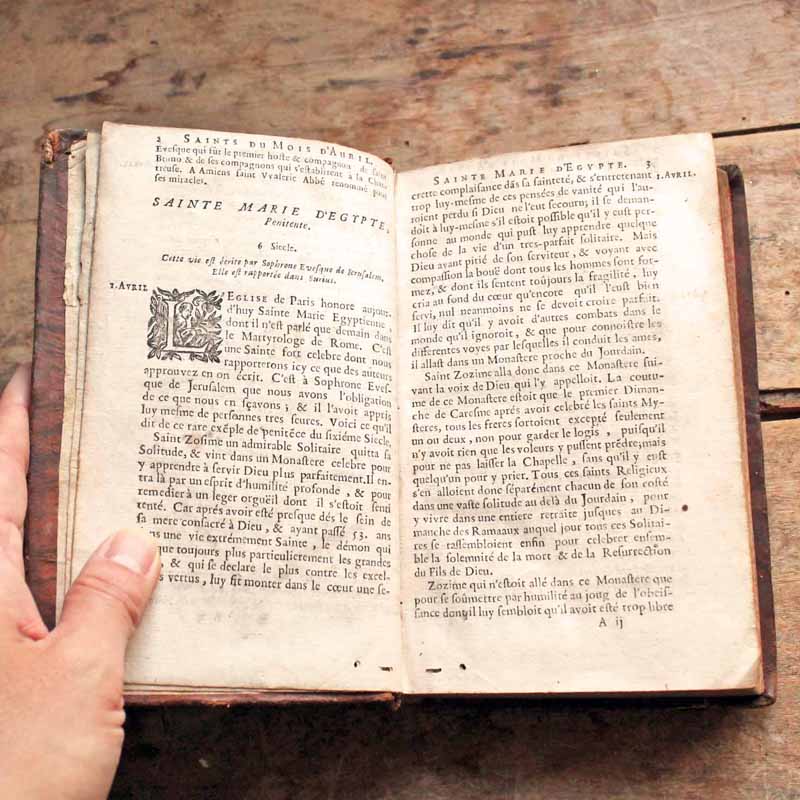 2 SAINTS DU MOIS D'AURIL,
Evesque qui fût le premier hoste & compagnon de saint
Bruno & de ses compagnons qui s'establirent à la Char-
treuse. A Amiens saint Vvaleric Abbé renommé pour
ses miracles.
SAINTE MARIE D'EGYPTE,
Penitente.
6 Siecle.
Cette vie est écrite par Sophrone Evesque de Jerusalem,
Elle est rapportée dans Surius.
1. AVRIL
LEGLISE de Paris honore aujour-
d'huy Sainte Marie Egyptienne,
dont il n'est parlé que demain dans
le Martyrologe de Rome. C'est
une Sainte fort celebre dont nous
rapporterons icy ce que des auteurs
approuvez en on écrit. C'est à Sophrone Eves-
que de Jerusalem que nous avons l'obligation
de ce que nous en sçavons; & il l'avoit appris
luy mesme de personnes tres seures. Voici ce qu'il
dit de ce rare exẽple de penitẽce du sixiéme Siecle,
Saint Zosime un admirable Solitaire quitta sa
Solitude, & vint dans un Monastere celebre pour
y apprendre à servir Dieu plus parfaitement. Il en-
tra là par un esprit d'humilité profonde, & pour
remedier à un leger orgüeil dont il s'estoit senti
tenté. Car aprés avoir esté presque dés le sein de
sa mere consacré à Dieu, & ayant passé 53. ans
une vie extrémement Sainte, le démon qui
que toujours plus particulierement les grandes
, & qui se declare le plus contre les excel-
vertus, luy fit monter dans le cœur une se-
SAINTE MARIE D'EGYPTE. 3
crette complaisance dãs sa sainteté, & s'entretenant 1. AVRIL.
trop luy-mesme de ces pensées de vanité qui l'au-
roient perdu si Dieu ne l'eut secouru; il se deman-
doit à luy-mesme s'il estoit possible qu'il y eust per-
sonne au monde qui pust luy apprendre quelque
chose de la vie d'un tres-parfait solitaire. Mais
Dieu ayant pitié de son serviteur, & voyant avec
compassion la bouë dont tous les hommes sont for-
mez, & dont ils sentent toûjours la fragilité, luy
cria au fond du cœur qu'encore qu'il l'eust bien
servi, nul neanmoins ne se devoit croire parfait.
Il luy dit qu'il y avoit d'autres combats dans le
monde qu'il ignoroit, & que pour connoistre les
differentes voyes par lesquelles il conduit les ames,
il allast dans un Monastere proche du Jourdain.
Saint Zozime alla donc dans ce Monastere sui-
vant la voix de Dieu qui l'y appelloit. La coutu-
me de ce Monastere estoit que le premier Diman-
che de Caresme aprés avoir celebré les saints My-
steres, tous les freres sortoient excepté seulement
un ou deux, non pour garder le logis, puisqu'il
n'y avoit rien que les voleurs y pussent prẽdre; mais
pour ne pas laisser la Chapelle, sans qu'il y eust
quelqu'un pour y prier. Tous ces saints Religieux
s'en alloient donc séparément chacun de son costé
dans une vaste solitude au delà du Jourdain, pour
y vivre dans une entiere retraite jusques au Di-
manche des Ramaaux auquel jour tous ces Solitai-
res se rassembloient enfin pour celebrer ensem-
ble la solemnité de la mort & de la Resurrection
du Fils de Dieu.
Zozime qui n'estoit allé dans ce Monastere que
pour se soûmettre par humilité au joug de l'obeis-
sance dont il luy sembloit qu'il avoit esté trop libre
A ij